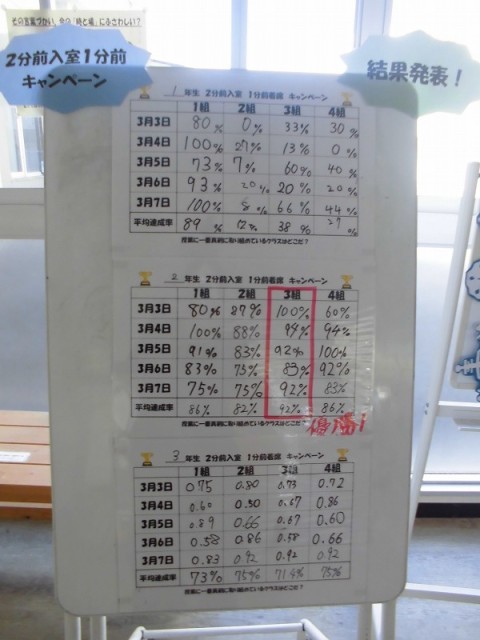 その言葉づかい、今の「時と場」にふさわしい?
2分前入室1分前
キャンペーン
結果発表!
1年生 2分前入室 1分前着席 キャンペーン
1組 2組 3組 4組
3月3日 80% 0% 33% 30%
3月4日 100% 27% 13% 0%
3月5日 73% 7% 60% 40%
3月6日 93% 20% 20% 20%
3月7日 100% % 66% 44%
平均達成率 89% 12% 38% 27%
授業に一番真剣に取り組めているクラスはどこだ?
2年生 2分前入室 1分前着席 キャンペーン
1組 2組 3組 4組
3月3日 80% 87% 100% 60%
3月4日 100% 88% 94% 94%
3月5日 91% 83% 92% 100%
3月6日 83% 75% 83% 92%
3月7日 75% 75% 92% 83%
平均達成率 86% 82% 92% 86%
授業に一番真剣に取り組めているクラスはどこだ?
優勝!
3年生 2分前入室 1分前着席 キャンペーン
1組 2組 3組 4組
3月3日 0.75 0.80 0.73 0.72
3月4日 0.60 0.50 0.67 0.86
3月5日 0.89 0.66 0.67 0.60
3月6日 0.58 0.86 0.58 0.66
3月7日 0.83 0.92 0.92 0.92
平均達成率 73% 75% 71.4% 75%
授業に一番真剣に取り組めているクラスはどこだ?